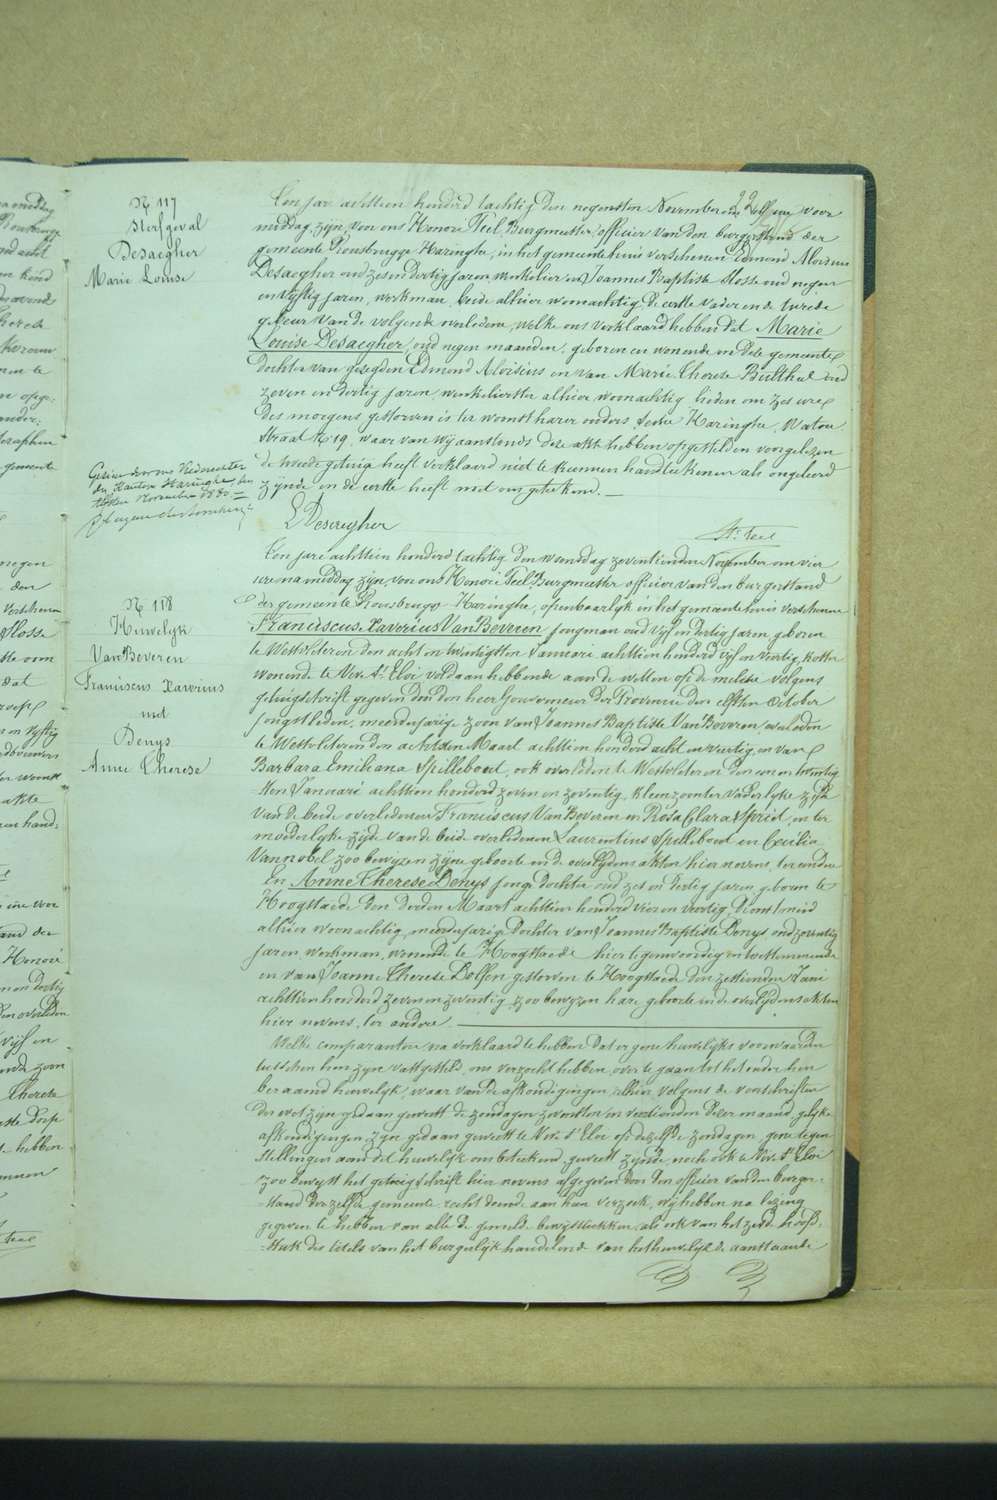 N 117
Sterfgeval
Desaegher
Marie Louise
Een jaar achttien honderd tachtig den negensten November om elf ure voor
middag, zijn, voor ons Honoré Teel, Burgmeester, officier van den burgerstand der
gemeente Rousbrugge Haringhe, in het gemeentehuis verschenen Edmond Aloisius
Desaegher oud zes en dertig jaren, werkelier en Joannes Baptiste Slosse oud negen
en vyftig jaren, werkman, beide alhier woonachtig De eerste vader en de tweede
gebuur van de volgende overledene, welke ons verklaard hebben dat Marie
Louise Desaegher, oud negen maanden, geboren en wonende in deze gemeente
dochter van gezegden Edmond Aloisius en van Marie Therese Bulthel oud
zeven en dertig jaren werkelierster alhier woonachtig heden om zes ure
des morgens gestorven is ter woonst harer ouders, sectie Haringhe, Watou
straat N 19, waar van wij aanstonds deze akt hebben opgesteld en voorgelezen
de tweede getuige heeft verklaard niet te kunnen handteekenen als ongeleerd
zijnde en de eerste heeft met ons geteekend.
Gezien door ons Vrederechter
des Kantons Haringhe den
November 1880
E Desaegher
H. Teel
N 118
Huwelijk
Van Beveren
Franciscus Xaverius
met
Denys
Anne Therese
Een jare achttien honderd tachtig den woensdag zeventienden November om vier
ure na middag zijn, voor ons Honoré Teel Burgmeester officier van den burgerstand
der gemeente Rousbrugg Haringhe, openbaarlijk in het gemeentehuis verschenen
Franciscus Xaverius Van Beveren jongman oud vyf en dertig jaren, geboren
te Westvleteren den acht en twintigsten Januari achttien honderd vyf en veertig, koster
wonende te Vive St Eloi voldaan hebbende aan de wetten op de melicie volgens
getuigschrift gegeven door den heer Gouverneur der Provincie den elfsten October
jongstleden, meerderjarige zoon van Joannes Baptiste Van Beveren, overleden
te Westvleteren den achtsten Maart achttien honderd acht en veertig, en van
Barbara Emiliana Spillebout, ook overleden te Westvleteren den een en twintig
sten Januari achttien honderd zeven en zeventig, kleinzoon ter vaderlijke zijde
van de beide overledenen Franciscus Van Beveren en Rosa Clara Spriet, en ter
moederlyke zyde van de beide overledenen Laurentius Spillebout en Cecilia
Vannobel zoo bewyzen zijne geboorte en de overlydens akten hier nevens, ter eendre
En Anne Therese Denys jonge dochter oud zes en dertig jaren geboren te
Hoogstaede den derden Maart achttien honderd vier en veertig, dienstmeid
alhier woonachtig, meerderjarige dochter van Joannes Baptiste Denys oud zeventig
jaren werkman, wonende te Hoogstaede hier tegenwoordig en toestemmende
en van Joanne Therese Dolfen gestorven te Hoogstaede den zestienden Juni
achttien honderd zeven en zeventig, zoo bewyzen hare geboorte en de overlydens akten
hier nevens, ter andere.
Welke comparanten na verklaard te hebben dat er gene huwelijks voorwaarden
tusschen hen zijn vastgesteld, ons verzocht hebben over te gaan tot het onder hen
beraamd huwelijk, waar van de afkondigingen alhier, volgens de voorschriften
der wet zijn gedaan geweest de zondagen zevensten en veertienden dezer maand, gelijke
afkondigingen zijn gedaan geweest te Vive St Eloi op dezelfde zondagen, gene tegen
stellingen aan dit huwelijk ons beteekend geweest zijnde, noch ook te Vive St Eloi
zoo bewyst het getuigschrift hier nevens afgegeven door den officier van den burger
stand derzelfde gemeente, recht doende aan hun verzoek, wij hebben na lezing
gegeven te hebben van alle de gemelde bewijsstukken, als ook van het zesde hoofd-
stuk des titels van het burgerlijk handelende van het huwelijk de aanstaande